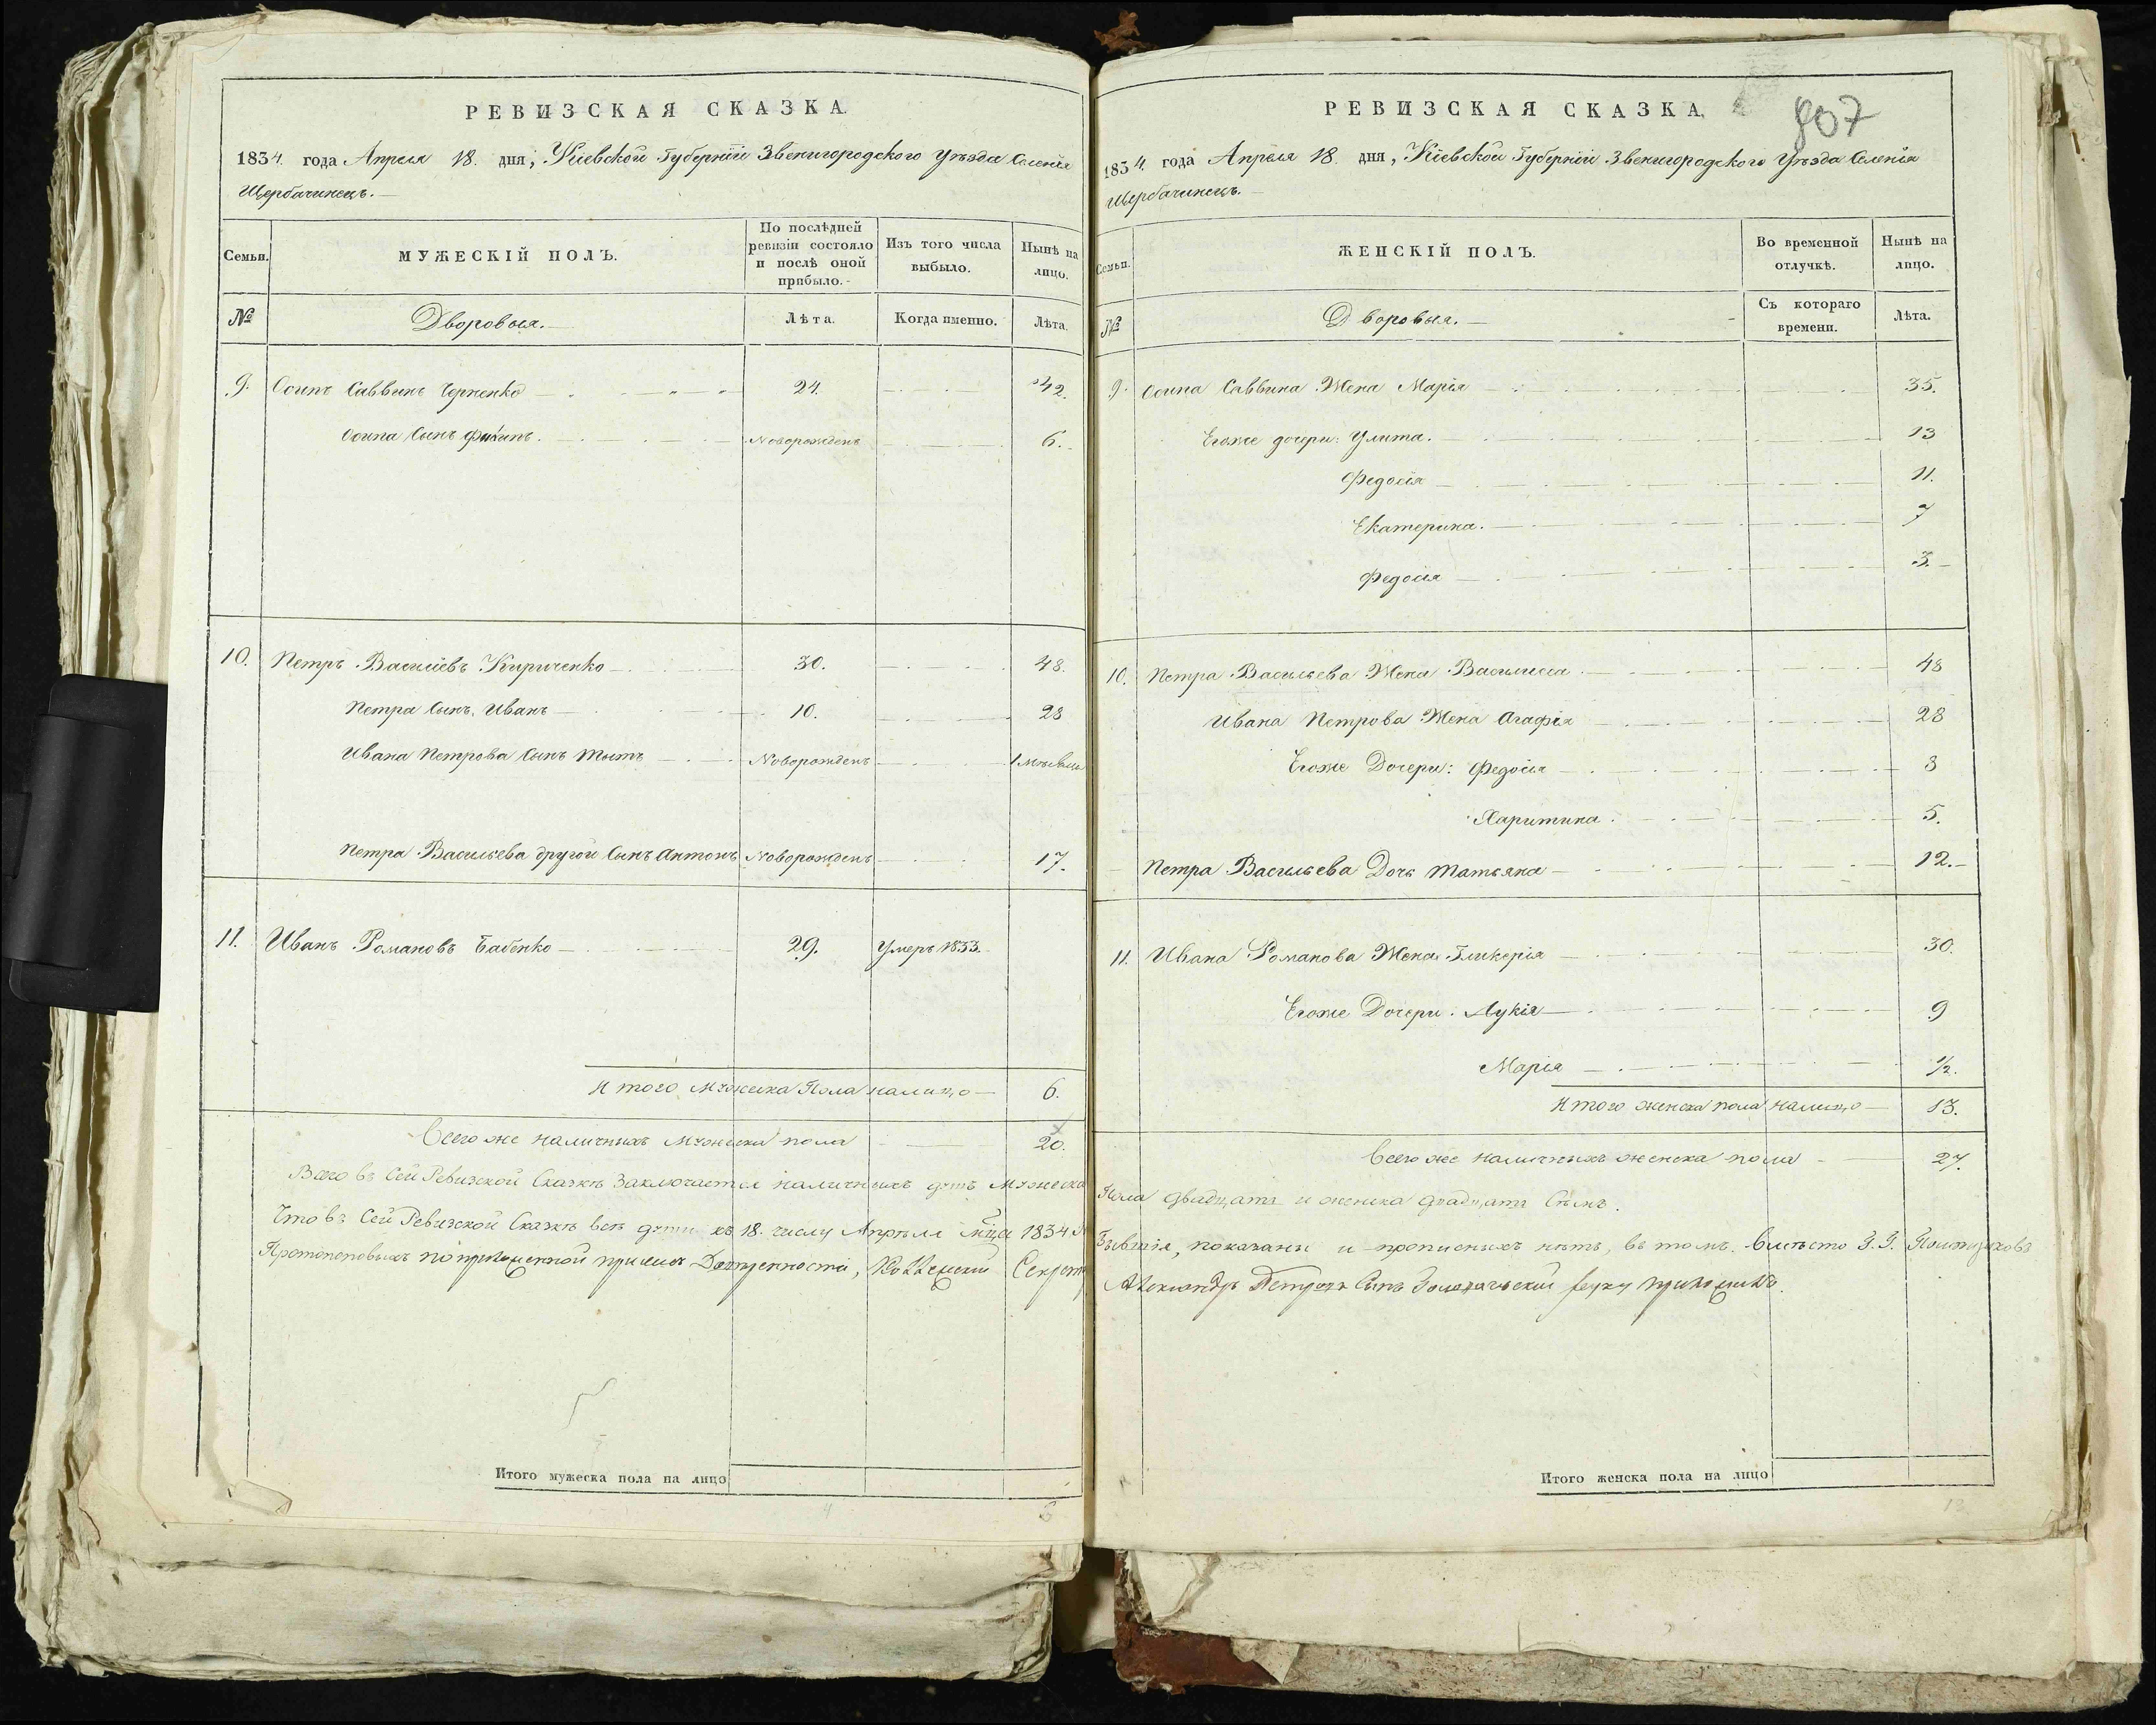 РЕВИЗСКАЯ СКАЗКА.
1834. года Апреля 18. дня, Кіевской Губерніи Звенигородского Уѣзда Селенія
Щербачинець.
Семьи.
МУЖЕСКІЙ ПОЛЪ.
По послѣдней ревизіи состояло и послѣ оной прибыло.
Изъ того числа выбыло.
Нынѣ на лицо.
№
Дворовыя.
Лѣта.
Когда именно.
Лѣта.
9. Осипъ Саввинъ Черненко 24. 42.
Осипа Сынъ Новорожденъ 6.
10. Петръ Василіевъ Кириченко 30. 48.
Петра Сынъ, Иванъ 10. 28
Ивана Петрова Сынъ Титъ Новорожденъ 1
Петра Васильева другой Сынъ Антонъ Новорожденъ 17.
11. Иванъ Романовъ Бабенко 29. Умеръ 1833.
Итого Мужеска Пола налицо 6.
Всего же наличныхъ Мужеска пола 20.
Всего въ Сей Ревизской Сказкѣ Заключается наличныхъ душъ Мужеска
Что въ Сей Ревизской Сказкѣ всѣ души къ 18. числу Апрѣля мца 1834
Итого мужеска пола на лицо
РЕВИЗСКАЯ СКАЗКА.
807
1834. года Апреля 18. дня, Кіевской Губерніи Звенигородского Уѣзда Селенія
Щербачинець.
Семьи.
ЖЕНСКІЙ ПОЛЪ.
Во временной отлучкѣ.
Нынѣ на лицо.
№
Дворовыя.
Съ котораго времени.
Лѣта.
9. Осипа Саввина Жена Марія 35.
Егоже дочери: Улита. 13
Федосія 11.
Екатерина. 7
Федосія 3.
10. Петра Васильева Жена Василиса 48
Ивана Петрова Жена Агафія 28
Егоже Дочери: Федосія 8
Харитина. 5.
Петра Васильева Дочь Татьяна 12.
11. Ивана Романова Жена Гликерія 30.
Егоже Дочери: Лукія 9
Марія 1/2.
Итого женска пола налицо 13.
Всего же наличныхъ женска пола 27.
Пола двадцать и женска двадцать Сѣмъ.
показаны и прописныхъ нѣтъ, въ томъ. Вмѣсто
Александръ Петровъ Сынъ руку приложилъ.
Итого женска пола на лицо
13